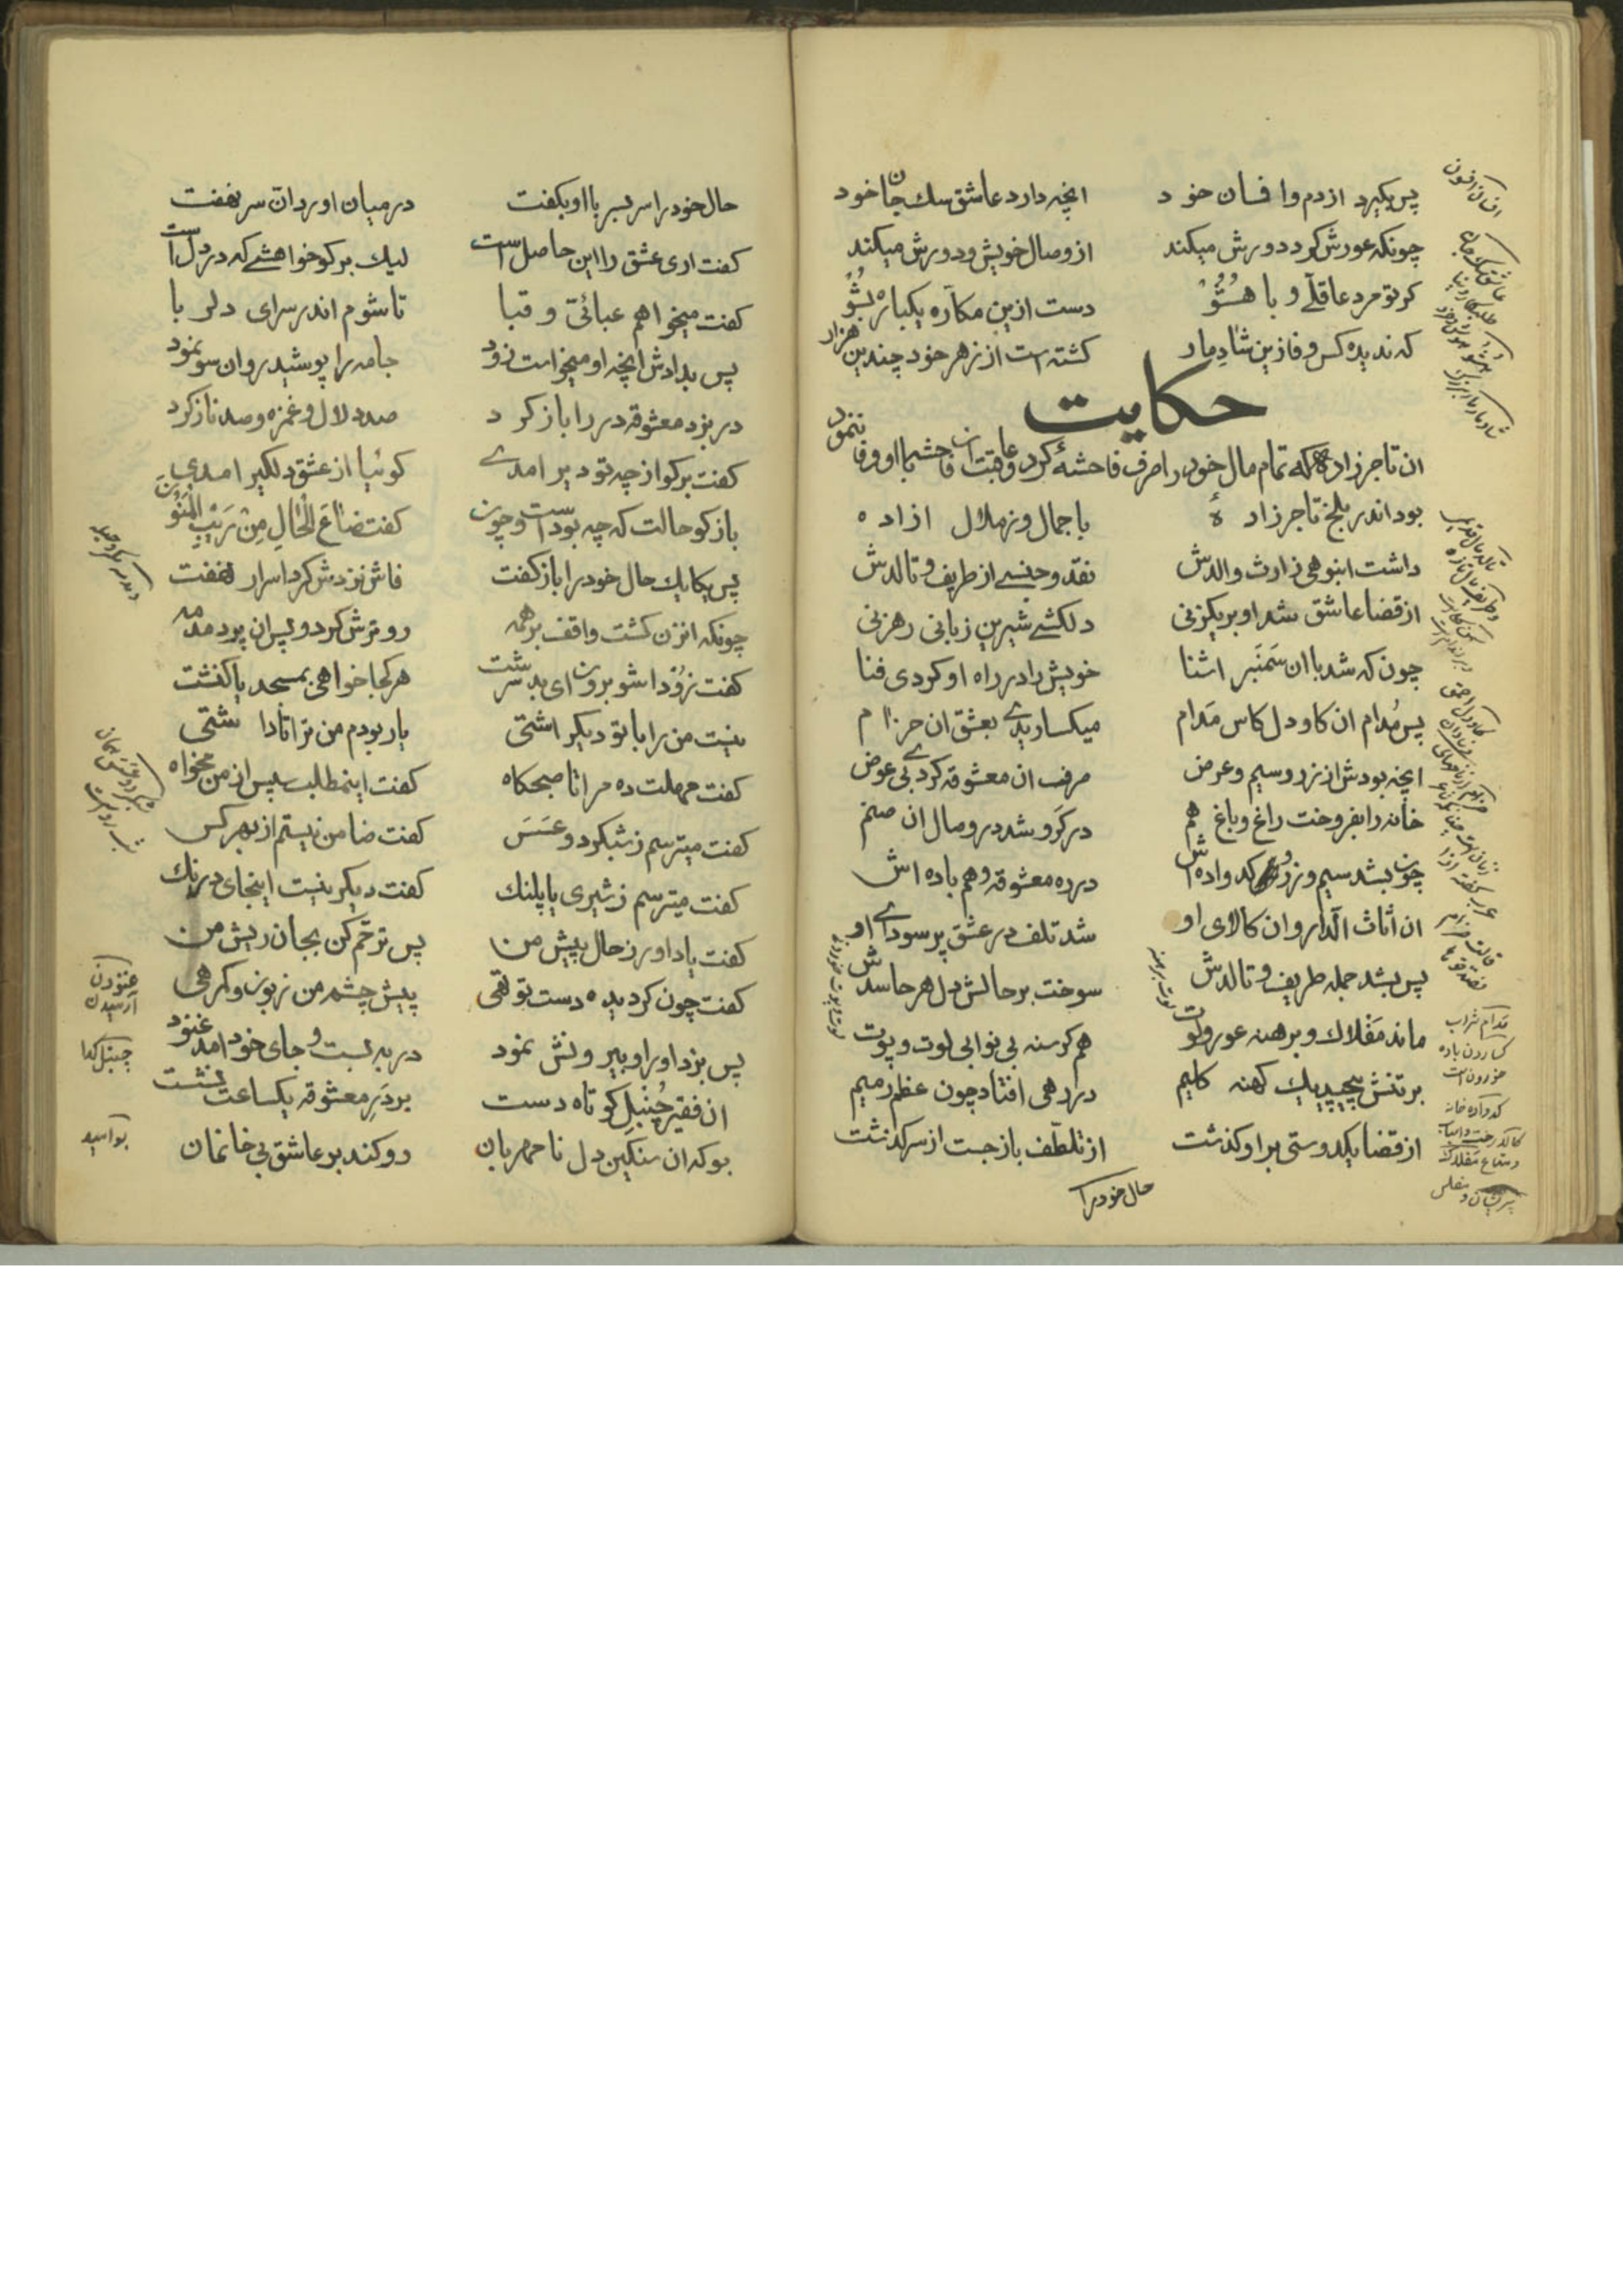 پس بگیرد از دم و افسان خود    انچه دارد عاشق سك جان خود
چونکه عورش کرد دورش میکند    از وصال خویش و دورش میکند
کر تو مرد عاقلے و با هُشُو    دست ازین مکاره یکباره بشُو
که ندیده کس وفا زین شادمار    کشته است از زهر خود چندین هزار
حکایت
ان تاجر زاده که تمام مال خود را صرف فاحشهٔ کرد و عاقبت ان فاحشه با او وفا ننمود
بود اندر بلخ تاجر زادهٔ    با جمال و زملال ازاده
داشت انبوهی ز ارث والدش    نقد و جنسے از طریف و تالدش
از قضا عاشق شد او بر یکزنی    دلکشے شیرین زبانی رهزنی
چون که شد با ان سَمَنبر اشنا    خویش را در راه او کردی فنا
پس مُدام ان کاو دل کاس مَدام    میکسارید بعشق ان حرام
انچه بودش از زر و سیم و عرض    صرف ان معشوقه کردے بی عوض
خانه را بفروخت راغ و باغ هم    در کرو شد در وصال ان صنم
چون بشد سیم و زر و کدواده اش    در ره معشوقه و هم باده اش
ان اثاث الدار و ان کالای او    شد تلف در عشق پر سودای او
پس بشد جمله طریف و تالدش    سوخت بر حالش دل هر حاسدش
ماند مَفلاك و برهنه عور و لوت    هم کرسنه بی نوایی لوت و پوت
بر تنش پیچید یك کهنه کلیم    در رهی افتاد چون عظم رمیم
از قضا یکدوستی بر او کذشت    از تلطف باز جست از سرکذشت
حال خود را
حال خود را سر بسر با او بکفت    در میان اورد ان سر نهفت
کفت اری عشق را این حاصل است    لیك بر کو خواهشے که در دل است
کفت میخواهم عبائی و قبا    تا شوم اندر سرای دلربا
پس بدادش انچه او میخواست زود    جامه را پوشید روان سو نمود
در بزد معشوقه در را باز کرد    صد دلال و غمزه و صد ناز کرد
کفت بر کو از چه تو دیر امدے    کوئیا از عشق دلکیر امدی
باز کو حالت که چه بود است و چون    کفت ضاعَ المالِ مِنْ رَیْبِ المَنُون
پس یکایك حال خود را باز کفت    فاش نزدش کرد اسرار نهفت
چونکه انزن کشت واقف بر همه    رو ترش کرد و پس ان پر دمدمه
کفت زُوْدا شو برون ای بد سرشت    هر کجا خواهی بمسجد یا کنشت
نیست من را با تو دیکر اشتی    یار بودم من ترا تا داشتی
کفت مهلت ده مرا تا صبحکاه    کفت اینمطلب پس از من مخواه
کفت میترسم ز شبکرد و عَسَس    کفت ضامن نیستم از بهر کس
کفت میترسم ز شیری یا پلنك    کفت دیکر نیست اینجای درنك
کفت یاد اور ز حال پیش من    پس ترحّم کن بجان ریش من
کفت چون کردیده دست تو تهی    پیش چشم من زبون و کمرهی
پس بزد او را و بیرونش نمود    در به بست و جای خود امد غنود
ان فقیر جُنبلِ کوتاه دست    بر دَرِ معشوقه یکساعت نشست
بو که ان سنکین دل نامهربان    رو کند بر عاشق بی خانمان
مدام شراب
کساردن باده
خوردن است
کدواده خانه
غنودن
آرمیدن
جنبل کدا
بو امید